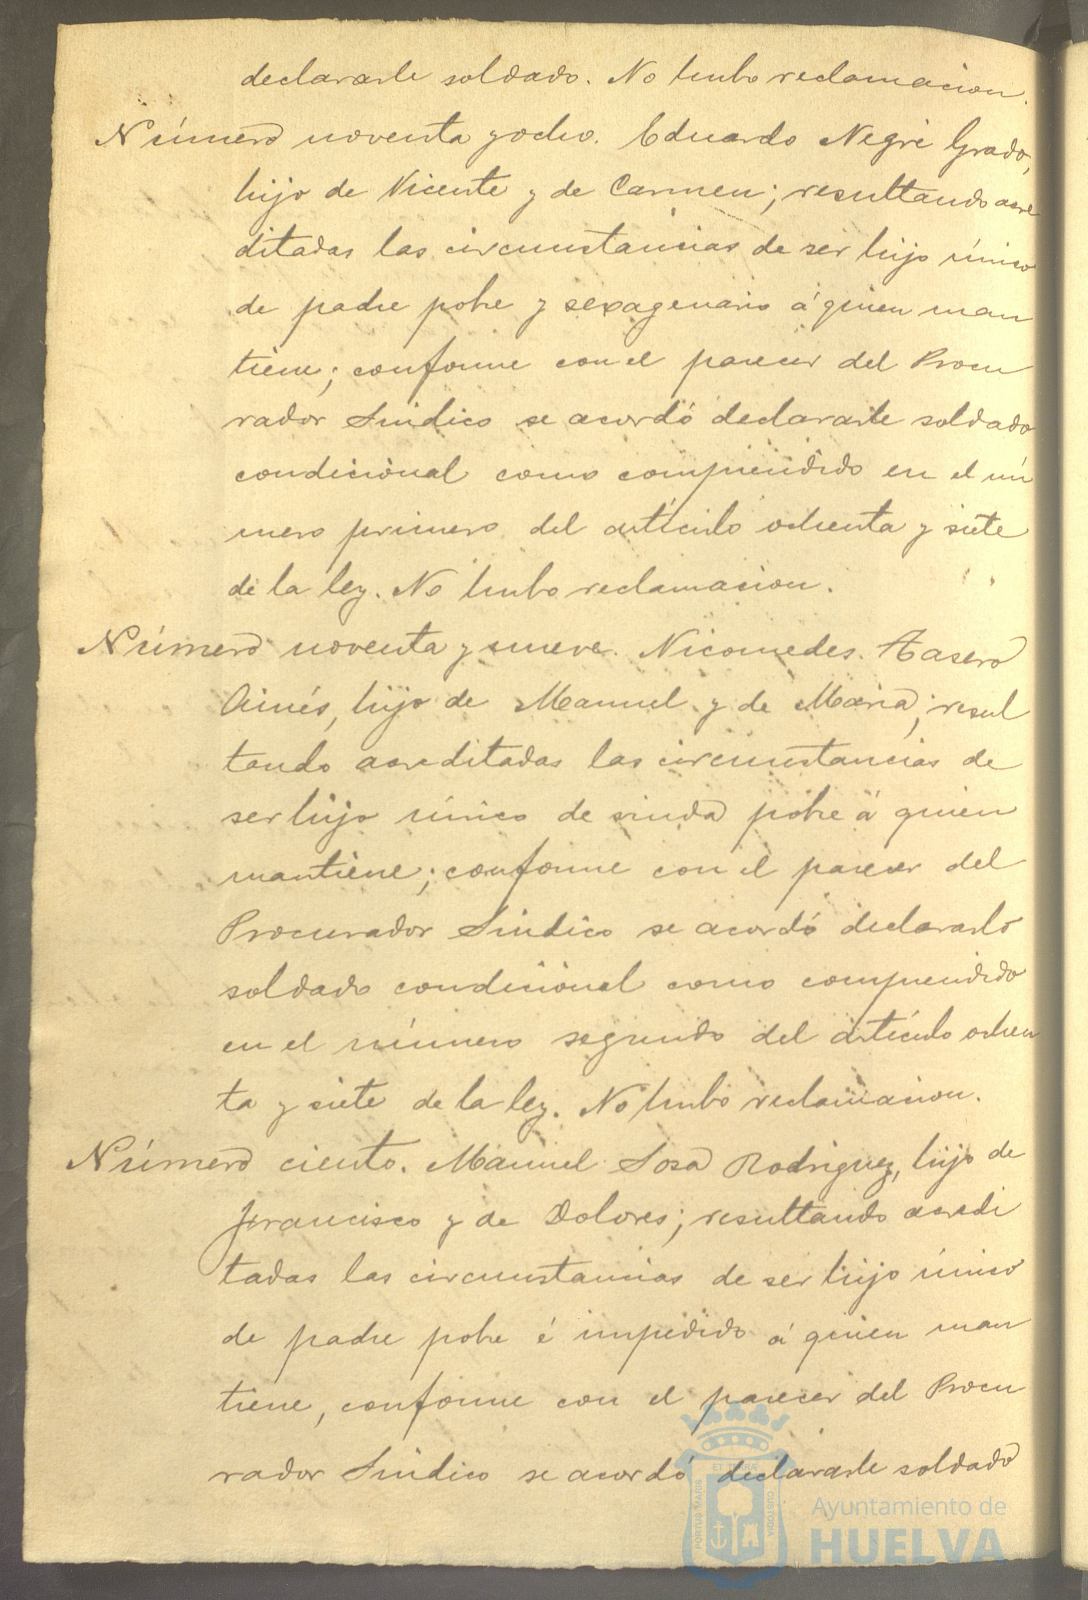 declararle soldado. No hubo reclamacion.
Número noventa y ocho. Eduardo Negre Grado,
hijo de Vicente y de Carmen; resultando acre
ditadas las circunstancias de ser hijo único
de padre pobre y sexagenario á quien man
tiene; conforme con el parecer del Procu
rador Sindico se acordó declararle soldado
condicional como comprendido en el nú
mero primero del artículo ochenta y siete
de la ley. No hubo reclamacion.
Número noventa y nueve. Nicomedes
hijo de Manuel y de Maria; resul
tando acreditadas las circunstancias de
ser hijo único de viuda pobre á quien
mantiene; conforme con el parecer del
Procurador Sindico se acordó declararlo
soldado condicional como comprendido
en el número segundo del artículo ochen
ta y siete de la ley. No hubo reclamacion.
Número ciento. Manuel Sosa Rodriguez, hijo de
Francisco y de Dolores; resultando acredi
tadas las circunstancias de ser hijo único
de padre pobre é impedido á quien man
tiene, conforme con el parecer del Procu
rador Sindico se acordó declararle soldado
Ayuntamiento de
HUELVA